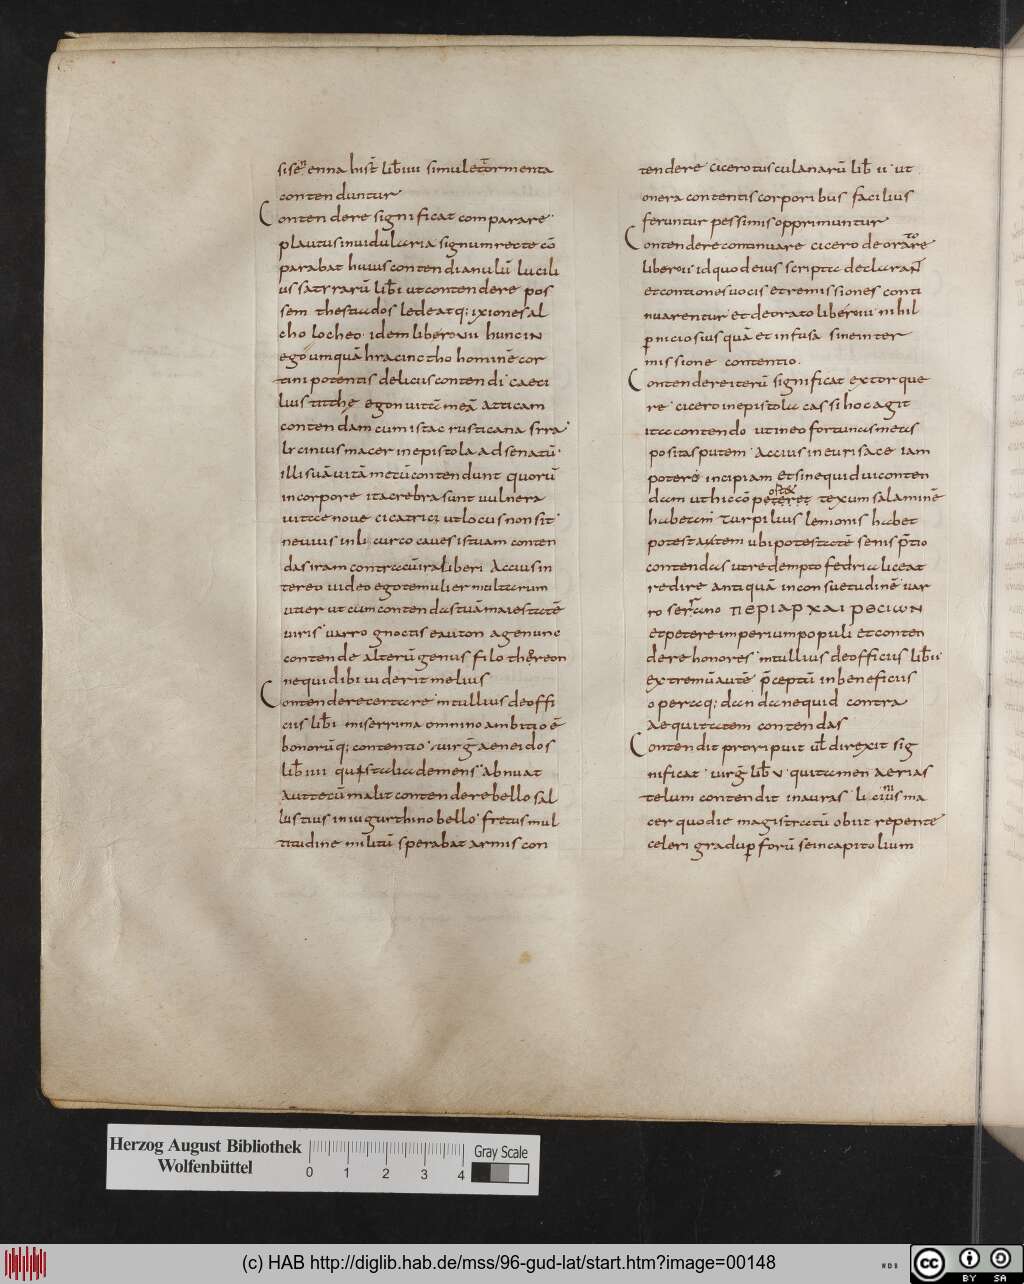 siseenna hist̄ lib̄ iiii simul et tormenta
contenduntur
Contendere significat comparare
plautus in uidularia signum recte cō
parabat huius contendi anulū lucili
us satyrarū lib̄ i ut contendere pos
sem thestiados ledeatq; ixiones al
cholocheo idem libero uii hunc in
ego umquā hracinctho hominē cor
tini potentis deliciis contendi caeci
lius titthe egon uitā meā atticam
contendam cum istac rusticana syra
licinius macer in epistola ad senatū
illi suā uitā metū contendunt quorū
in corpore ita crebra sunt uulnera
uti ce noue cicatrici ut locus non sit
neuius in li curco caues istuam conten
das iram contra cū ira liberi Accius in
tereo uideo ego te mulier maltarum
utier ut cum contendas tuā maiestatē
uiris uarro gnoctis eauton age nunc
contende alterū genus filo thereon
ne quid ibi uiderit melius
Contendere certare m tullius de offi
ciis lib̄ i miserrima omnino ambitio ē
honorūq; contentio uirg̅ aeneidos
lib̄ iiii quis talia demens abnuat
Aut tecū malit contendere bello sal
lustius in iugurthino bello fretus mul
titudine militū sperabat armis con
tendere cicero tusculanarū lib̄ ii ut
onera contentis corporibus facilius
feruntur pessimis opprimuntur
Contendere continuare cicero de oratore
libero is id quod eius scripta declarant
et contiones uocis et remissiones conti
nuarentur et de orato libero iii nihil
p̱niciosius quā et infusa sine inter
missione contentio
Contendere iterū significat extorque
re cicero in epistola cassi hoc agit
ita contendo ut in eo fortunas meas
positas putem Accius in eurisace iam
potero incipiam et sine quid ui conten
dam ut hic cō peteret texum salaminē
habeam Turpilius lemonis habet
potestautem ubi potestatē semis p̄tio
contendas ut redempto fedria liceat
redire antiquā in consuetudinē uar
ro serrano ΠΕΡΙΑΡΧΑΙΡΕСΙωΝ
et petere imperium populi et conten
dere honores m tullius de officiis lib̄ ii
extremū autē p̄ceptū in beneficiis
operaq; dan da ne quid contra
aequitatem contendas
Contendit proripuit ul̄ direxit sig
nificat uirg̅ lib̄ v qui tamen aerias
telum contendit in auras licinius ma
cer quo die magistratū obiit repente
celeri gradu p̱ forū se in capitolium
Herzog August Bibliothek
Wolfenbüttel
0 1 2 3 4
Gray Scale
(c) HAB http://diglib.hab.de/mss/96-gud-lat/start.htm?image=00148
WDB
cc BY SA